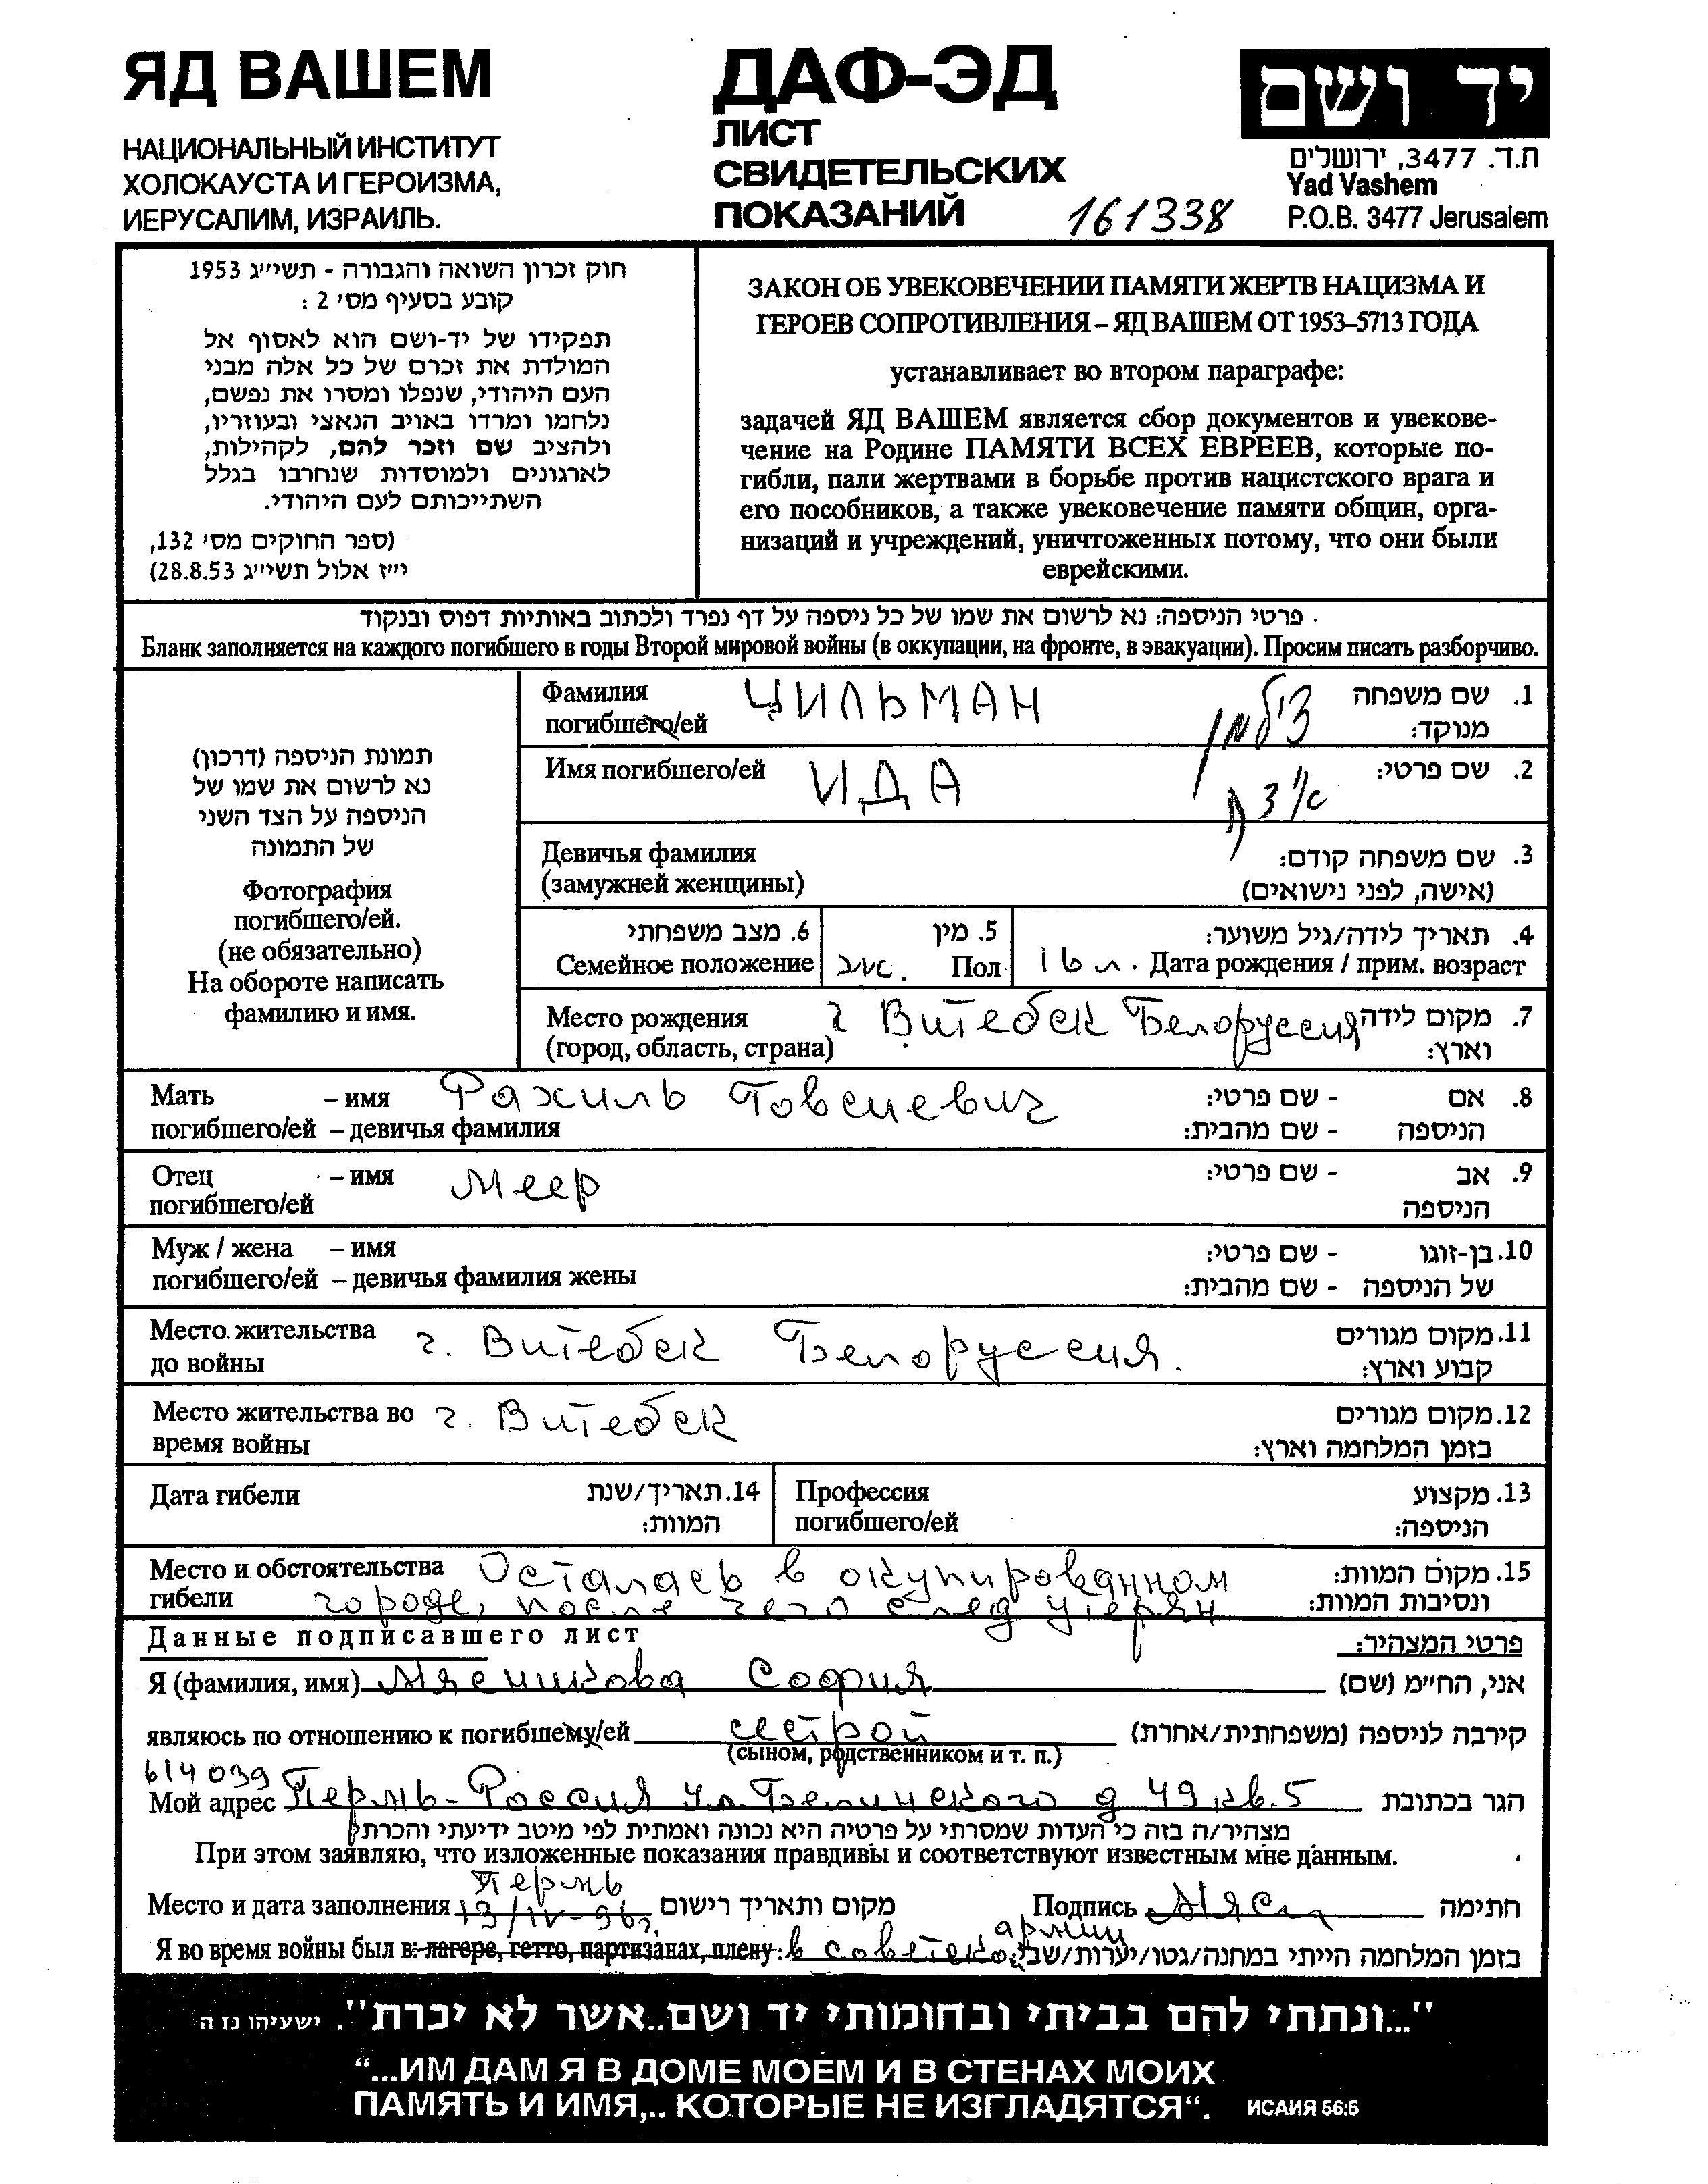 ЯД ВАШЕМ
НАЦИОНАЛЬНЫЙ ИНСТИТУТ
ХОЛОКАУСТА И ГЕРОИЗМА,
ИЕРУСАЛИМ, ИЗРАИЛЬ.
ДАФ-ЭД
ЛИСТ
СВИДЕТЕЛЬСКИХ
ПОКАЗАНИЙ
161338
יד ושם
ת.ד. 3477, ירושלים
Yad Vashem
P.O.B. 3477 Jerusalem
חוק זכרון השואה והגבורה - תשי״ג 1953
קובע בסעיף מס׳ 2 :
תפקידו של יד-ושם הוא לאסוף אל
המולדת את זכרם של כל אלה מבני
העם היהודי, שנפלו ומסרו את נפשם,
נלחמו ומרדו באויב הנאצי ובעוזריו,
ולהציב שם וזכר להם, לקהילות,
לארגונים ולמוסדות שנחרבו בגלל
השתייכותם לעם היהודי.
(ספר החוקים מס׳ 132,
י״ז אלול תשי״ג 28.8.53)
ЗАКОН ОБ УВЕКОВЕЧЕНИИ ПАМЯТИ ЖЕРТВ НАЦИЗМА И
ГЕРОЕВ СОПРОТИВЛЕНИЯ – ЯД ВАШЕМ ОТ 1953–5713 ГОДА
устанавливает во втором параграфе:
задачей ЯД ВАШЕМ является сбор документов и увекове-
чение на Родине ПАМЯТИ ВСЕХ ЕВРЕЕВ, которые по-
гибли, пали жертвами в борьбе против нацистского врага и
его пособников, а также увековечение памяти общин, орга-
низаций и учреждений, уничтоженных потому, что они были
еврейскими.
פרטי הניספה: נא לרשום את שמו של כל ניספה על דף נפרד ולכתוב באותיות דפוס ובנקוד
Бланк заполняется на каждого погибшего в годы Второй мировой войны (в оккупации, на фронте, в эвакуации). Просим писать разборчиво.
תמונת הניספה (דרכון)
נא לרשום את שמו של
הניספה על הצד השני
של התמונה
Фотография
погибшего/ей.
(не обязательно)
На обороте написать
фамилию и имя.
Фамилия ЦИЛЬМАН צילמן 1. שם משפחה
погибшего/ей מנוקד:
Имя погибшего/ей ИДА אידה 2. שם פרטי:
Девичья фамилия 3. שם משפחה קודם:
(замужней женщины) (אישה, לפני נישואים)
6. מצב משפחתי 5. מין 4. תאריך לידה/גיל משוער:
Семейное положение жс. Пол 16 л. Дата рождения / прим. возраст
Место рождения г Витебск Белоруссия 7. מקום לידה
(город, область, страна) וארץ:
Мать – имя Рахиль Товсиевич 8. אם - שם פרטי:
погибшего/ей – девичья фамилия הניספה - שם מהבית:
Отец – имя Меер 9. אב - שם פרטי:
погибшего/ей הניספה
Муж / жена – имя 10. בן-זוגו - שם פרטי:
погибшего/ей – девичья фамилия жены של הניספה - שם מהבית:
Место жительства г. Витебск Белоруссия. 11. מקום מגורים
до войны קבוע וארץ:
Место жительства во г. Витебск 12. מקום מגורים
время войны בזמן המלחמה וארץ:
Дата гибели 14. תאריך/שנת Профессия 13. מקצוע
המוות: погибшего/ей הניספה:
Место и обстоятельства Осталась в окупированном 15. מקום המוות:
гибели городе, после чего след утерян ונסיבות המוות:
Данные подписавшего лист פרטי המצהיר:
Я (фамилия, имя) Мясникова София אני, הח״מ (שם)
являюсь по отношению к погибшему/ей сестрой קירבה לניספה (משפחתית/אחרת)
(сыном, родственником и т. п.)
614039
Мой адрес Пермь-Россия ул. Белинского д 49 кв.5 הגר בכתובת
מצהיר/ה בזה כי העדות שמסרתי על פרטיה היא נכונה ואמתית לפי מיטב ידיעתי והכרתי
При этом заявляю, что изложенные показания правдивы и соответствуют известным мне данным.
Пермь
Место и дата заполнения 13/IV-96г. מקום ותאריך רישום Подпись Мясн חתימה
армии
Я во время войны был в: лагере, гетто, партизанах, плену: в советско בזמן המלחמה הייתי במחנה/גטו/יערות/שבי:
"...ונתתי להם בביתי ובחומותי יד ושם..אשר לא יכרת". ישעיהו נז ה
“...ИМ ДАМ Я В ДОМЕ МОЕМ И В СТЕНАХ МОИХ
ПАМЯТЬ И ИМЯ,.. КОТОРЫЕ НЕ ИЗГЛАДЯТСЯ“. ИСАИЯ 56:5